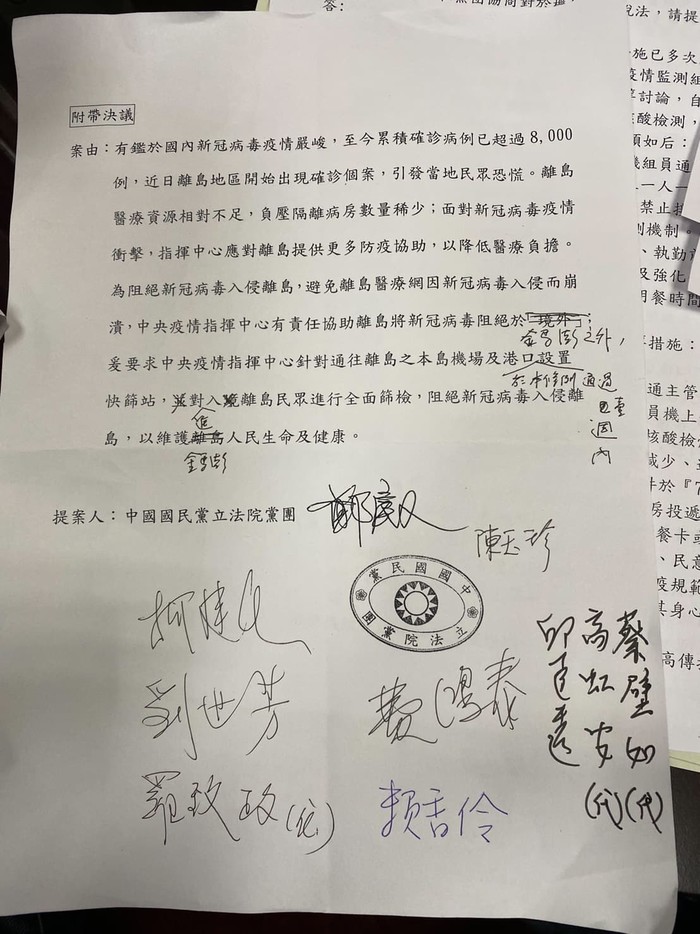 答：
附帶決議
案由：有鑑於國內新冠病毒疫情嚴峻，至今累積確診病例已超過8,000
例，近日離島地區開始出現確診個案，引發當地民眾恐慌。離島
醫療資源相對不足，負壓隔離病房數量稀少；面對新冠病毒疫情
衝擊，指揮中心應對離島提供更多防疫協助，以降低醫療負擔。
為阻絕新冠病毒入侵離島，避免離島醫療網因新冠病毒入侵而崩
潰，中央疫情指揮中心有責任協助離島將新冠病毒阻絕於「境外」；
金馬澎之外，
爰要求中央疫情指揮中心針對通往離島之本島機場及港口設置
於本條例通過
快篩站，並對入境離島民眾進行全面篩檢，阻絕新冠病毒入侵離
進
週
內
島，以維護離島人民生命及健康。
金馬澎
提案人：中國國民黨立法院黨團
陳玉珍
中國國民黨
立法院黨團
柯建銘
劉世芳
費鴻泰
羅致政（代）
賴香伶
邱臣遠
高虹安（代）
蔡壁如（代）
說法，請提
施已多次
疫情監測組
討論，自
核酸檢測，
如后：
機組員通
一人一
禁止
測機制。
、執勤
及強化
用餐時間
措施：
通主管
員機上
核酸檢
減少、
件於『
房投遞
餐卡或
、民意
疫規範
其身心
高傳